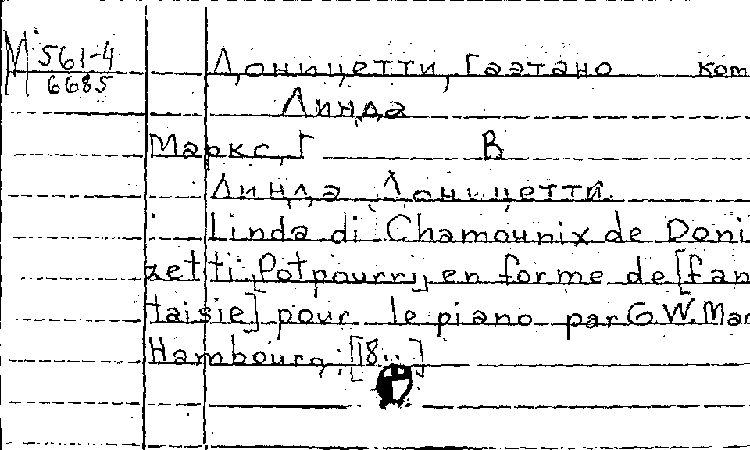 М 561-4
6685
Доницетти, Гаэтано ком
Линда
Маркс, Г В
Линда Доницетти.
Linda di Chamounix de Doni
zetti. Potpourri en forme de [fan
taisie] pour le piano par G.W. Mar
Hambourg: [18..]